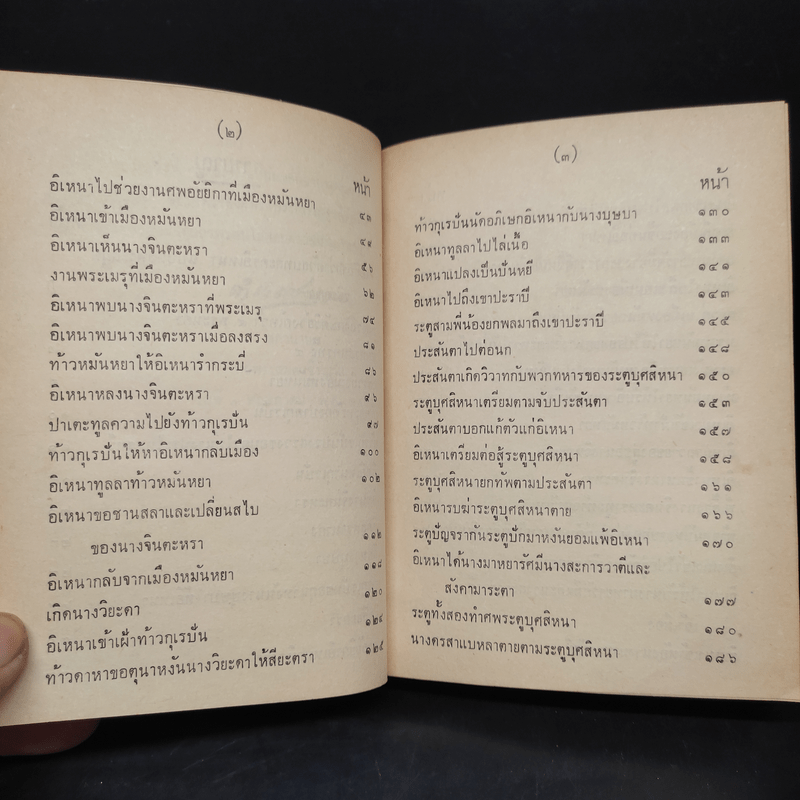 (๒)
หน้า
อิเหนาไปช่วยงานศพอัยยิกาที่เมืองหมันหยา ๔๓
อิเหนาเข้าเมืองหมันหยา ๔๙
อิเหนาเห็นนางจินตะหรา ๕๖
งานพระเมรุที่เมืองหมันหยา ๖๒
อิเหนาพบนางจินตะหราที่พระเมรุ ๗๔
อิเหนาพบนางจินตะหราเมื่อลงสรง ๘๑
ท้าวหมันหยาให้อิเหนารำกระบี่ ๘๖
อิเหนาหลงนางจินตะหรา ๙๖
ปาเตะทูลความไปยังท้าวกุเรปั่น ๙๗
ท้าวกุเรปั่นให้หาอิเหนากลับเมือง ๑๐๐
อิเหนาทูลลาท้าวหมันหยา ๑๐๒
อิเหนาขอชานสลาและเปลี่ยนสไบ
ของนางจินตะหรา ๑๑๒
อิเหนากลับจากเมืองหมันหยา ๑๑๘
เกิดนางวิยะดา ๑๒๐
อิเหนาเข้าเฝ้าท้าวกุเรปั่น ๑๒๔
ท้าวดาหาขอตุนาหงันนางวิยะดาให้สียะตรา ๑๒๕
(๓)
หน้า
ท้าวกุเรปั่นนัดอภิเษกอิเหนากับนางบุษบา ๑๓๐
อิเหนาทูลลาไปไล่เนื้อ ๑๓๓
อิเหนาแปลงเป็นปันหยี ๑๔๑
อิเหนาไปถึงเขาปะราปี ๑๔๓
ระตูสามพี่น้องยกพลมาถึงเขาปะราปี ๑๔๕
ประสันตาไปต่อนก ๑๔๘
ประสันตาเกิดวิวาทกับพวกทหารของระตูบุศสิหนา ๑๕๐
ระตูบุศสิหนาเตรียมตามจับประสันตา ๑๕๓
ประสันตาบอกแก้ตัวแก่อิเหนา ๑๕๗
อิเหนาเตรียมต่อสู้ระตูบุศสิหนา ๑๕๘
ระตูบุศสิหนายกทัพตามประสันตา ๑๖๑
อิเหนารบฆ่าระตูบุศสิหนาตาย ๑๖๖
ระตูปัญจรากันระตูปักมาหงันยอมแพ้อิเหนา ๑๗๐
อิเหนาได้นางมาหยารัศมีนางสะการวาตีและ
สังคามาระตา ๑๗๗
ระตูทั้งสองทำศพระตูบุศสิหนา ๑๘๐
นางดรสาแบหลาตายตามระตูบุศสิหนา ๑๘๖